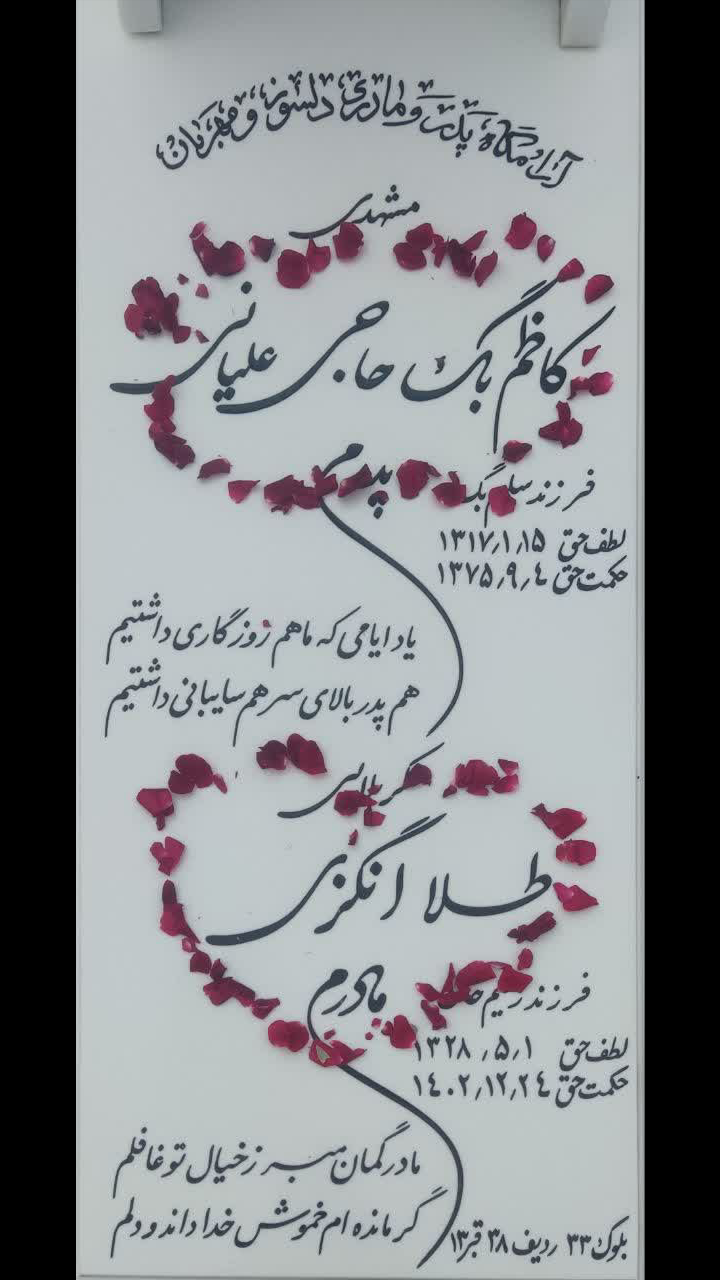 آرامگاه پدر و مادری دلسوز و مهربان
مشهدی
کاظم بک حاجی علیانی
پدرم
فرزند سلیم بک
لطف حق ۱۳۱۷٫۱٫۱۵
حکمت حق ۱۳۷۵٫۹٫٤
یاد ایامی که ما هم روزگاری داشتیم
هم پدر بالای سر هم سایبانی داشتیم
کربلایی
طلا انگزی
مادرم
فرزند
لطف حق ۱۳۲۸٫۵٫۱
حکمت حق ۱٤۰۲٫۱۲٫۲٤
مادر گمان مبر ز خیال تو غافلم
گر مانده ام خموش خدا داند و دلم
بلوک ۳۳ ردیف ۳۸ قبر ۱۳